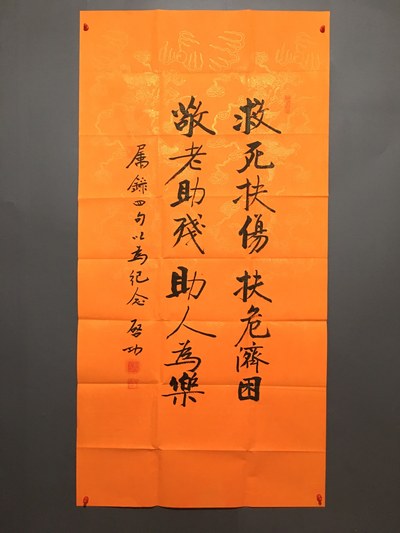 救死扶傷 扶危濟困
敬老助残 助人為樂
属錄四句以為紀念 啓功